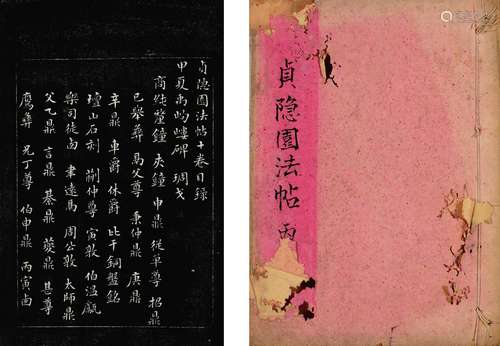 貞隐園法帖十卷目録
甲夏禹岣嶁碑 琱戈
商 鐘 夾鐘 申鼎 從單尊 招鼎
已舉彝 父尊 秉仲鼎 庚鼎
辛鼎 車爵 休爵 比干銅盤銘
壇山石刻 仲尊 寅敦 伯温甗
樂司徒卣 聿遠鬲 周公敦 太師鼎
父乙鼎 言鼎 綦鼎 夔鼎 甚尊
尊 兄丁尊 伯申鼎 丙寅卣
貞隐園法帖 丙